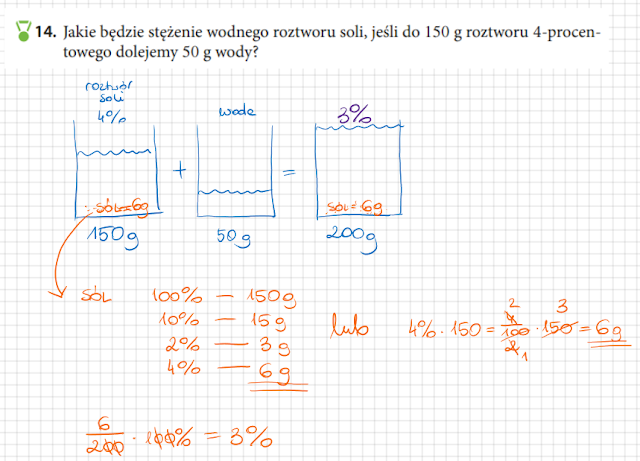 14. Jakie będzie stężenie wodnego roztworu soli, jeśli do 150 g roztworu 4-procen-
towego dolejemy 50 g wody?
roztwór
soli
4%
woda
3%
+
=
sól=6g
sól=6g
150g
50g
200g
sól 100% — 150g
10% — 15g
2% — 3g
4% — 6g
lub
4% · 150 = 4/100 · 150 = 6g
2 3
2 1
6/200 · 100% = 3%